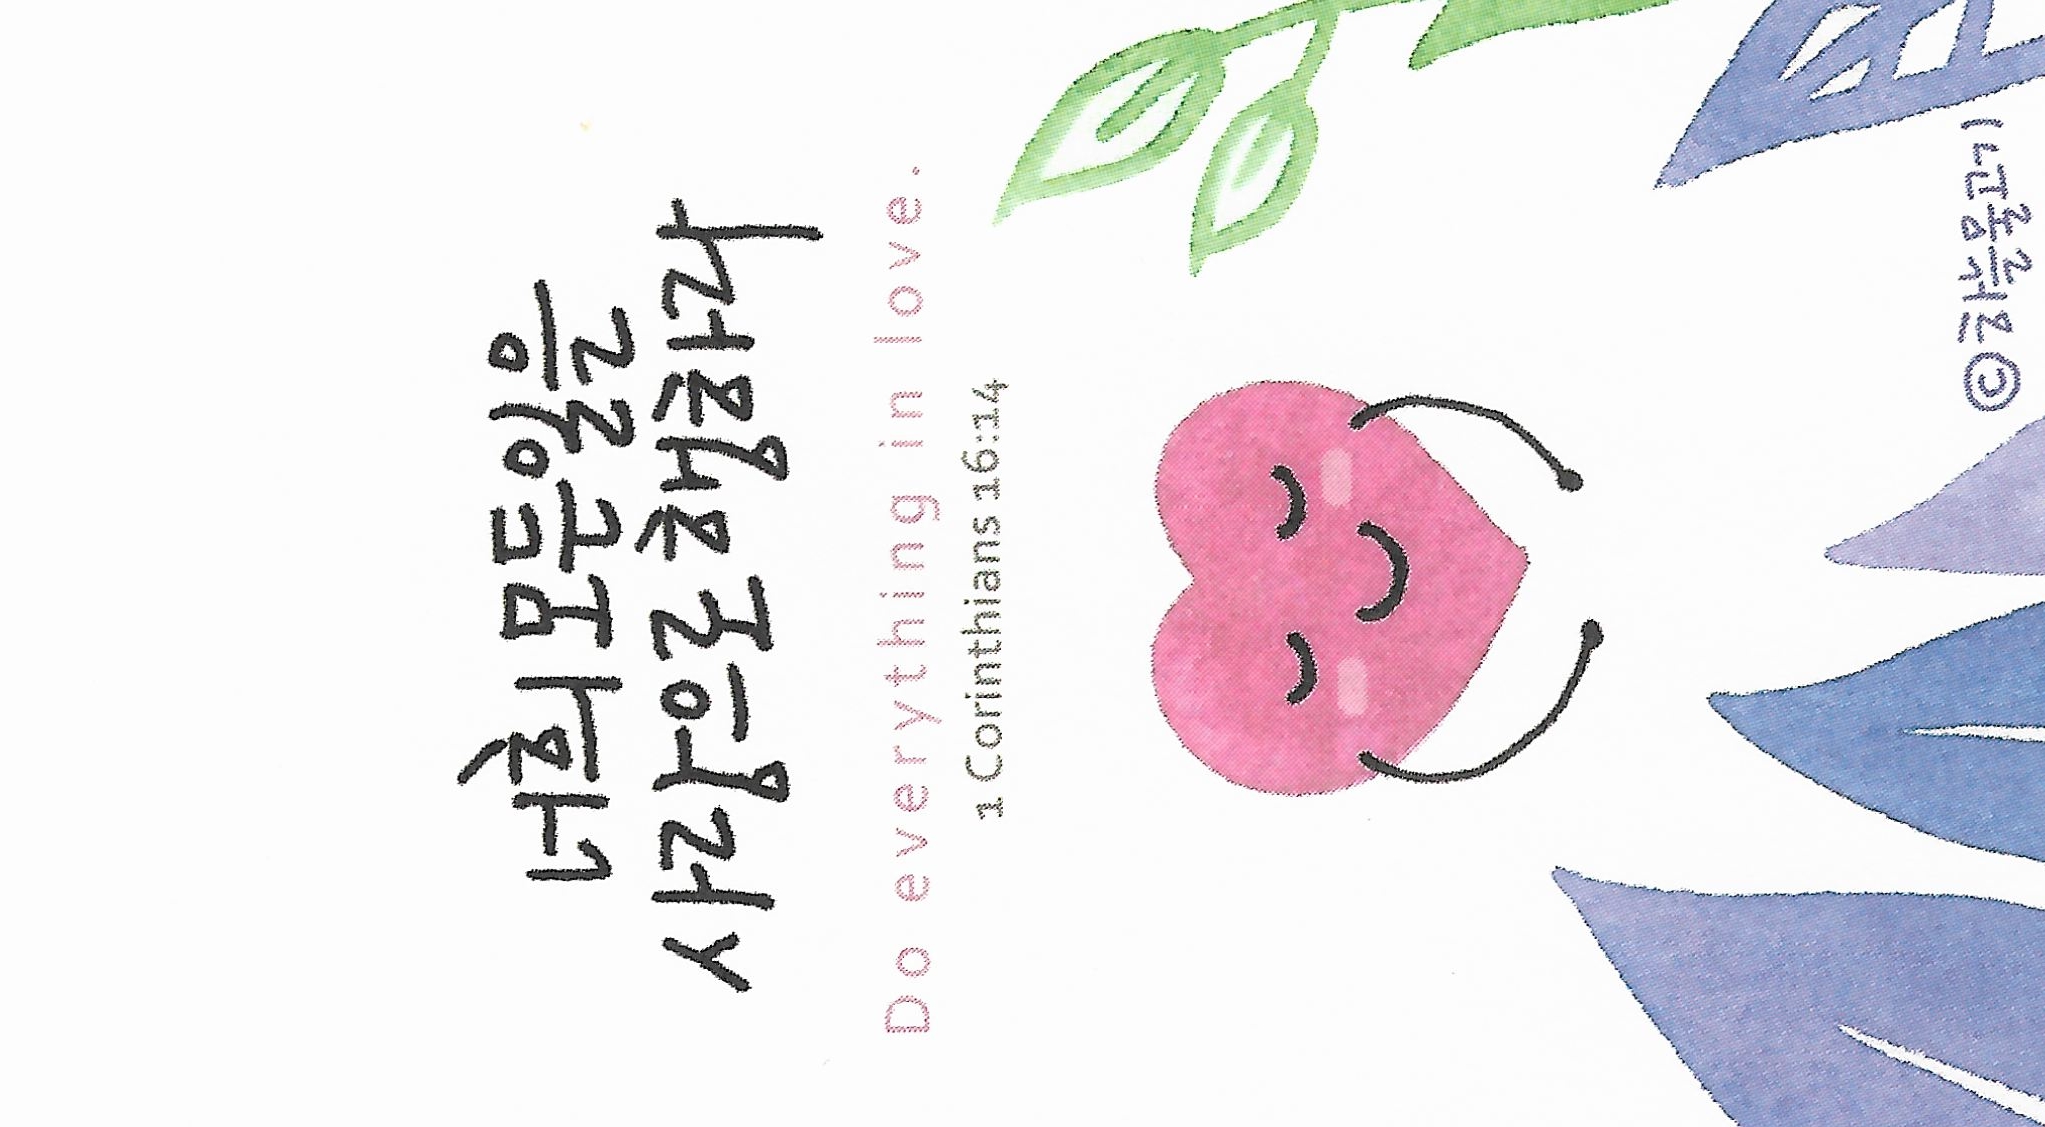 너희 모든일을
사랑으로 행하라
Do everything in love.
1 Corinthians 16:14
ⓒ하늘물고기